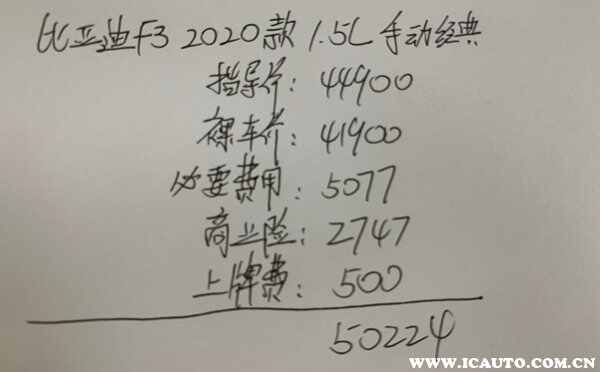 比亚迪F3 2020款 1.5L 手动经典
指导价：44900
裸车价：41900
必要费用：5077
商业险：2747
上牌费：500
50224
WWW.ICAUTO.COM.CN